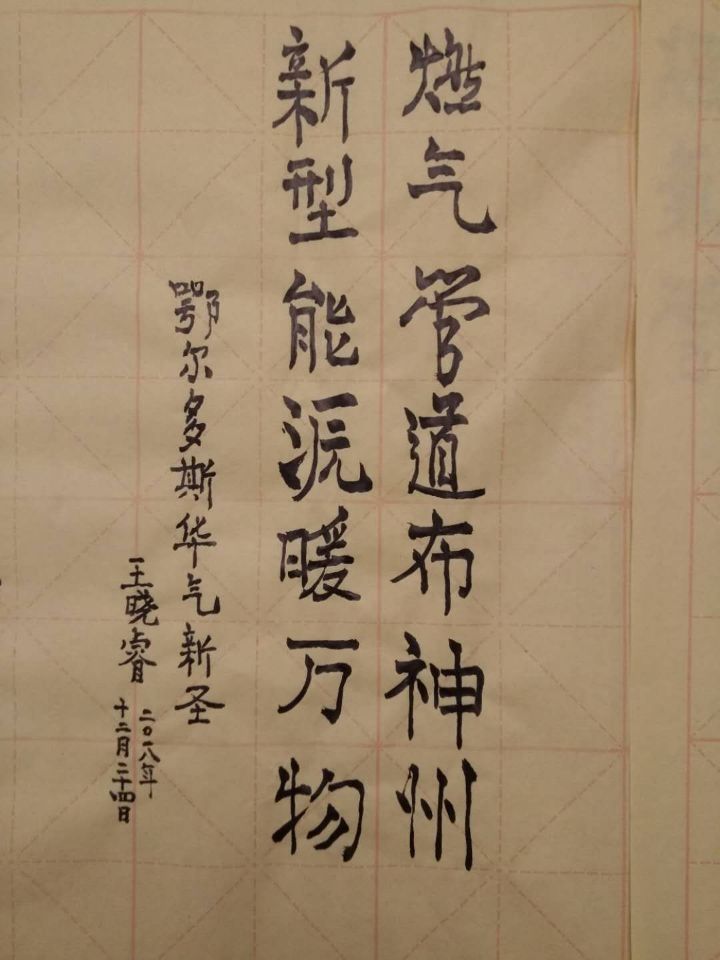 燃气管道布神州
新型能源暖万物
鄂尔多斯华气新圣
王晓睿
二〇一八年
十二月二十四日